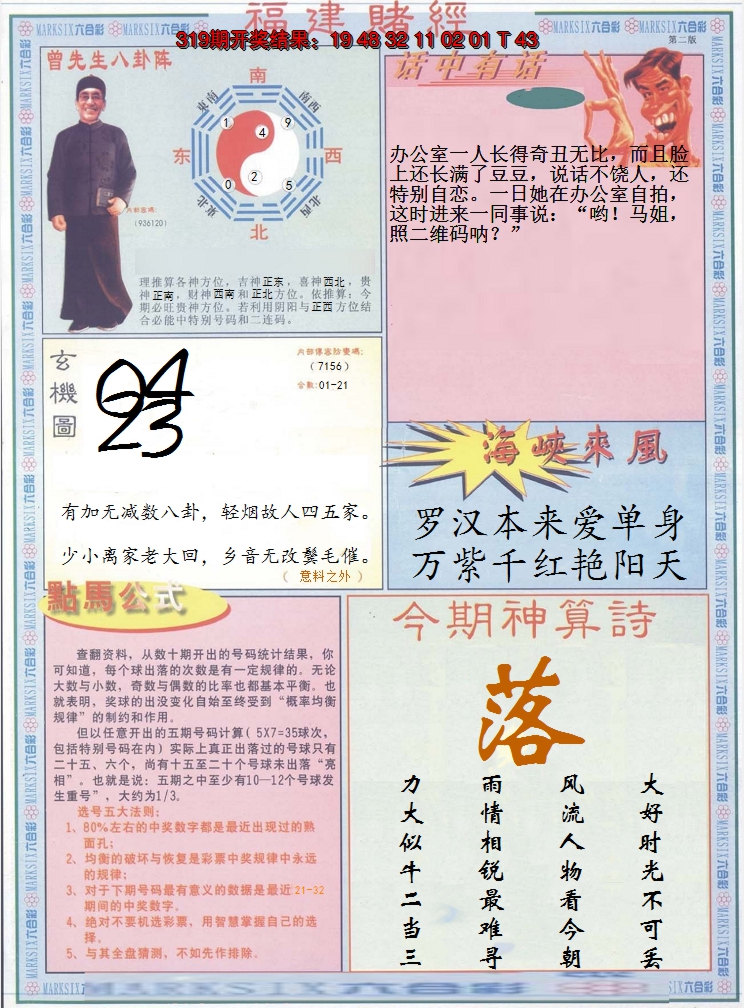 福建賭經
319期开奖结果：19 48 32 11 02 01 T 43
第二版
MARKSIX六合彩
曾先生八卦阵
南
東南
西南
1
4
9
东
西
0
2
5
東北
西北
北
内部密碼：
（936120）
理推算各神方位，吉神正东，喜神西北，贵
神正南，财神西南和正北方位。依推算：今
期必旺贵神方位。若利用阴阳与正西方位结
合必能中特别号码和二连码。
话中有话
办公室一人长得奇丑无比，而且脸
上还长满了豆豆，说话不饶人，还
特别自恋。一日她在办公室自拍，
这时进来一同事说：“哟！马姐，
照二维码呐？”
玄機圖
04
23
（7156）
合数:01-21
有加无减数八卦，轻烟故人四五家。
少小离家老大回，乡音无改鬓毛催。
（ 意料之外 ）
海峽來風
罗汉本来爱单身
万紫千红艳阳天
點馬公式
查翻资料，从数十期开出的号码统计结果，你
可知道，每个球出落的次数是有一定规律的。无论
大数与小数，奇数与偶数的比率也都基本平衡。也
就表明，奖球的出没变化自始至终受到“概率均衡
规律”的制约和作用。
但以任意开出的五期号码计算( 5X7=35球次，
包括特别号码在内) 实际上真正出落过的号球只有
二十五、六个，尚有十五至二十个号球未出落“亮
相”。也就是说：五期之中至少有10—12个号球发
生重号”，大约为1/3。
选号五大法则：
1、80%左右的中奖数字都是最近出现过的熟
面孔；
2、均衡的破坏与恢复是彩票中奖规律中永远
的规律；
3、对于下期号码最有意义的数据是最近21-32
期间的中奖数字。
4、绝对不要机选彩票，用智慧掌握自己的选
择。
5、与其全盘猜测，不如先作排除。
今期神算詩
落
大好时光不可丢
风流人物看今朝
雨情相锐最难寻
力大似牛二当三